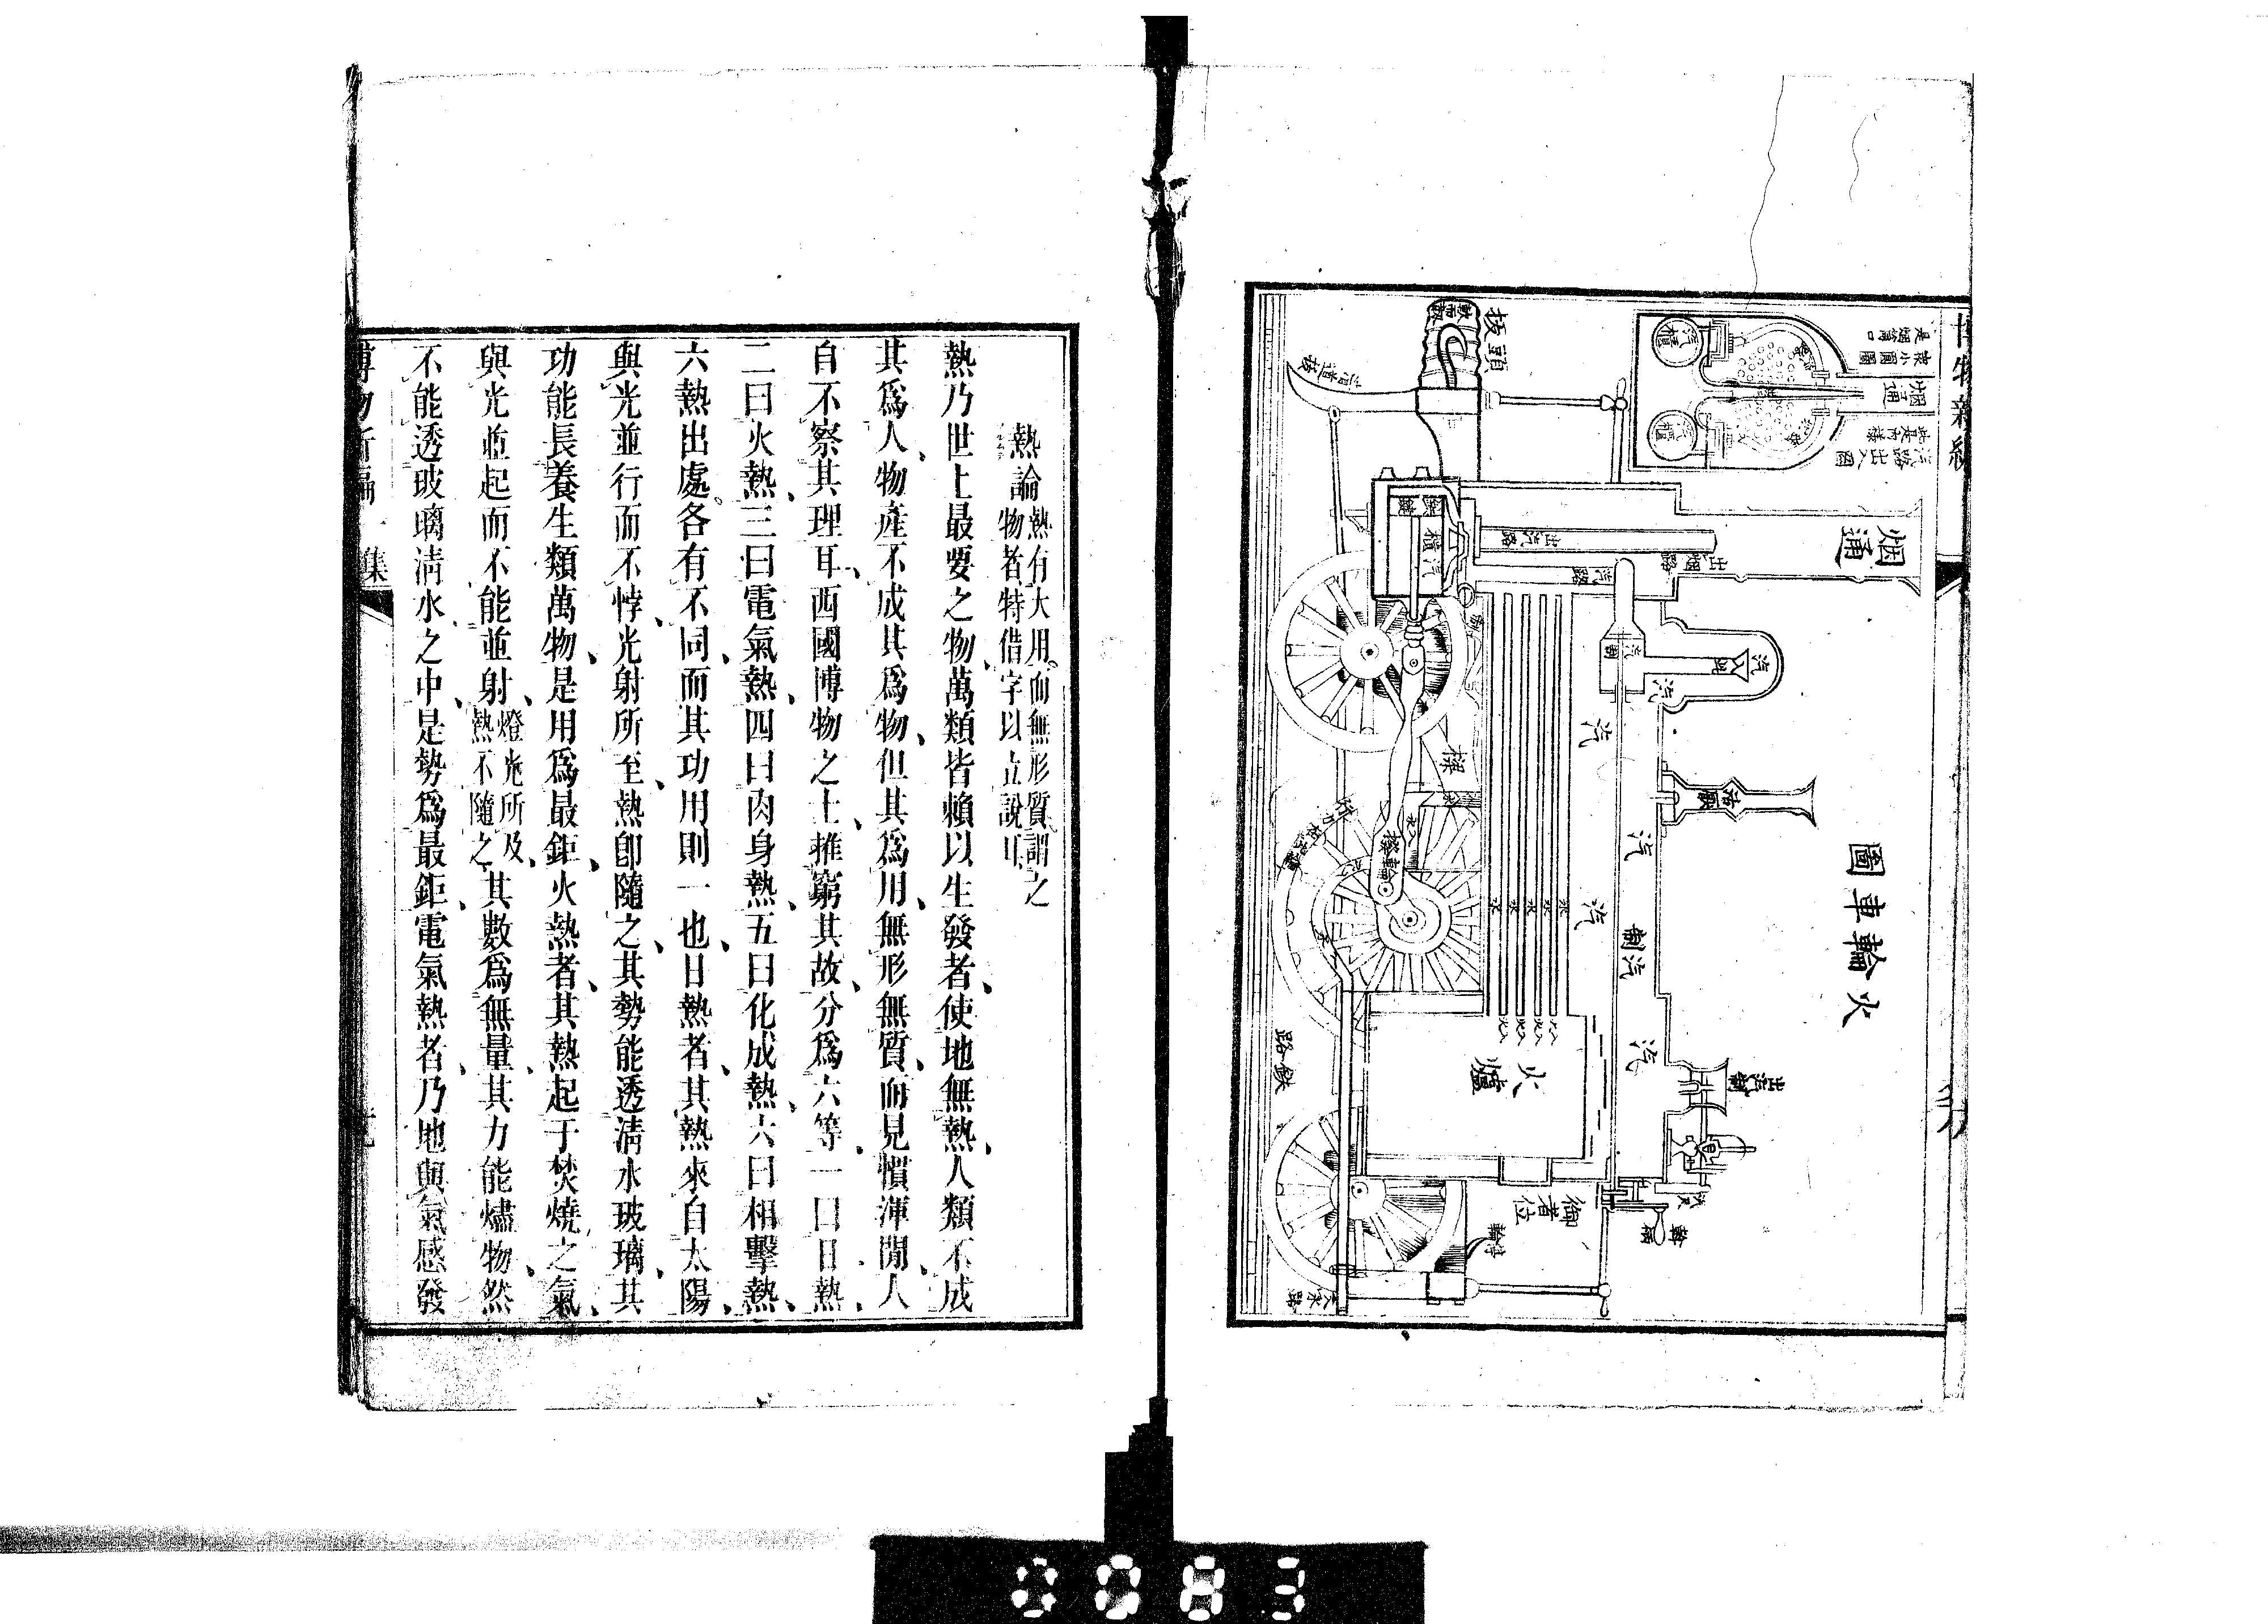 火輪車圖
烟通
烟通
汽櫃
汽櫃
掞頭
出汽路
汽路
出烟路
汽櫃
汽制
汽
汽
汽
汽
汽
汽
制汽
火爐
水
水
水
水
水
出汽制
御者位
路鉄
熱論
熱有大用。而無形質、謂之
物者、特借字以立說耳、
熱乃世上最要之物、萬類皆賴以生發者、使地無熱、人類不成
其爲人、物產不成其爲物、但其爲用、無形無質、而見慣渾閒、人
自不察其理耳、西國博物之士、推窮其故、分爲六等、一曰日熱、
二曰火熱、三曰電氣熱、四曰肉身熱、五曰化成熱、六曰相擊熱、
六熱出處。各有不同、而其功用則一也、日熱者、其熱來自太陽、
與光並行而不悖、光射所至、熱卽隨之、其勢能透淸水玻璃、其
功能長養生類萬物、是用爲最鉅、火熱者、其熱起于焚燒之氣、
與光並起而不能並射、燈光所及、熱不隨之、其數爲無量、其力能燼物、然
不能透玻璃淸水之中、是勢爲最鉅、電氣熱者、乃地與氣感發
集
0083